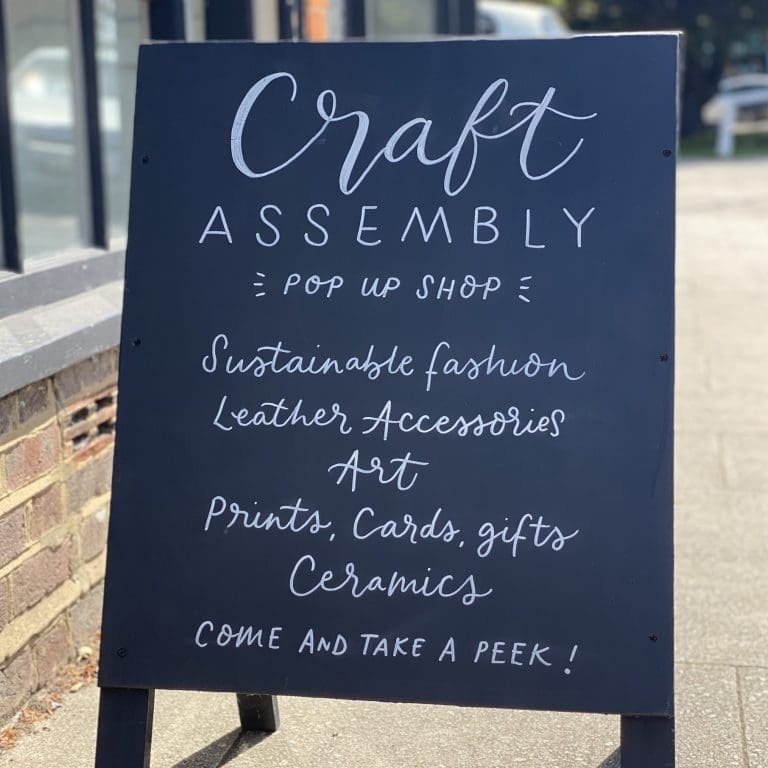 Craft
ASSEMBLY
POP UP SHOP
Sustainable fashion
Leather Accessories
Art
Prints, Cards, gifts
Ceramics
COME AND TAKE A PEEK!